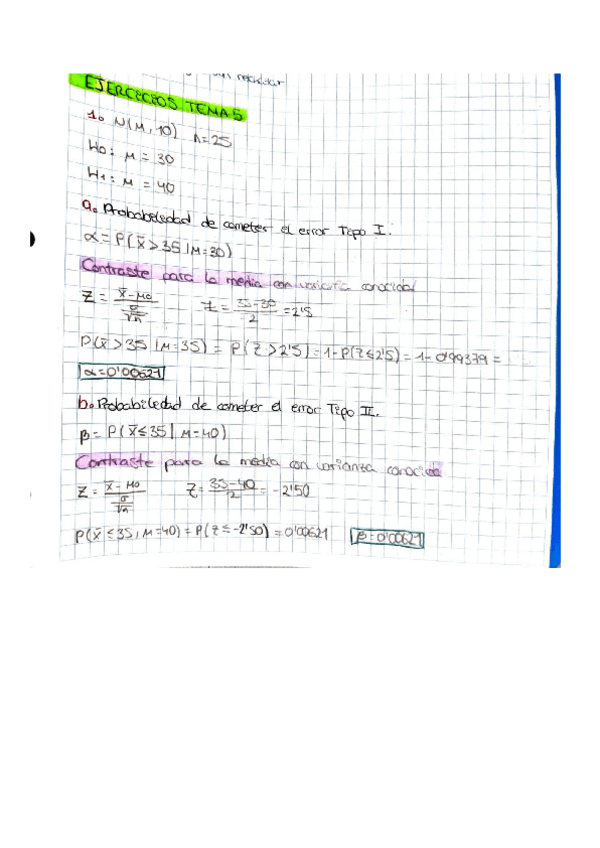 EJERCICIOS TEMA 5
1. N(M, 10) n=25
H0: M = 30
H1: M = 40
a. Probabilidad de cometer el error Tipo I.
α = P(x̄ > 35 | M=30)
Contraste para la media con varianza conocida
Z = x̄ - M0 / σ/√n Z = 35-30 / 2 = 2'5
P(x̄ > 35 | M=35) = P(Z > 2'5) = 1-P(Z ≤ 2'5) = 1- 0'99379 =
α = 0'00621
b. Probabilidad de cometer el error Tipo II.
β = P(x̄ ≤ 35 | M=40)
Contraste para la media con varianza conocida
Z = x̄ - M0 / σ/√n Z = 35-40 / 2 = -2'50
P(x̄ ≤ 35, M=40) = P(Z ≤ -2'50) = 0'00621 β = 0'00621